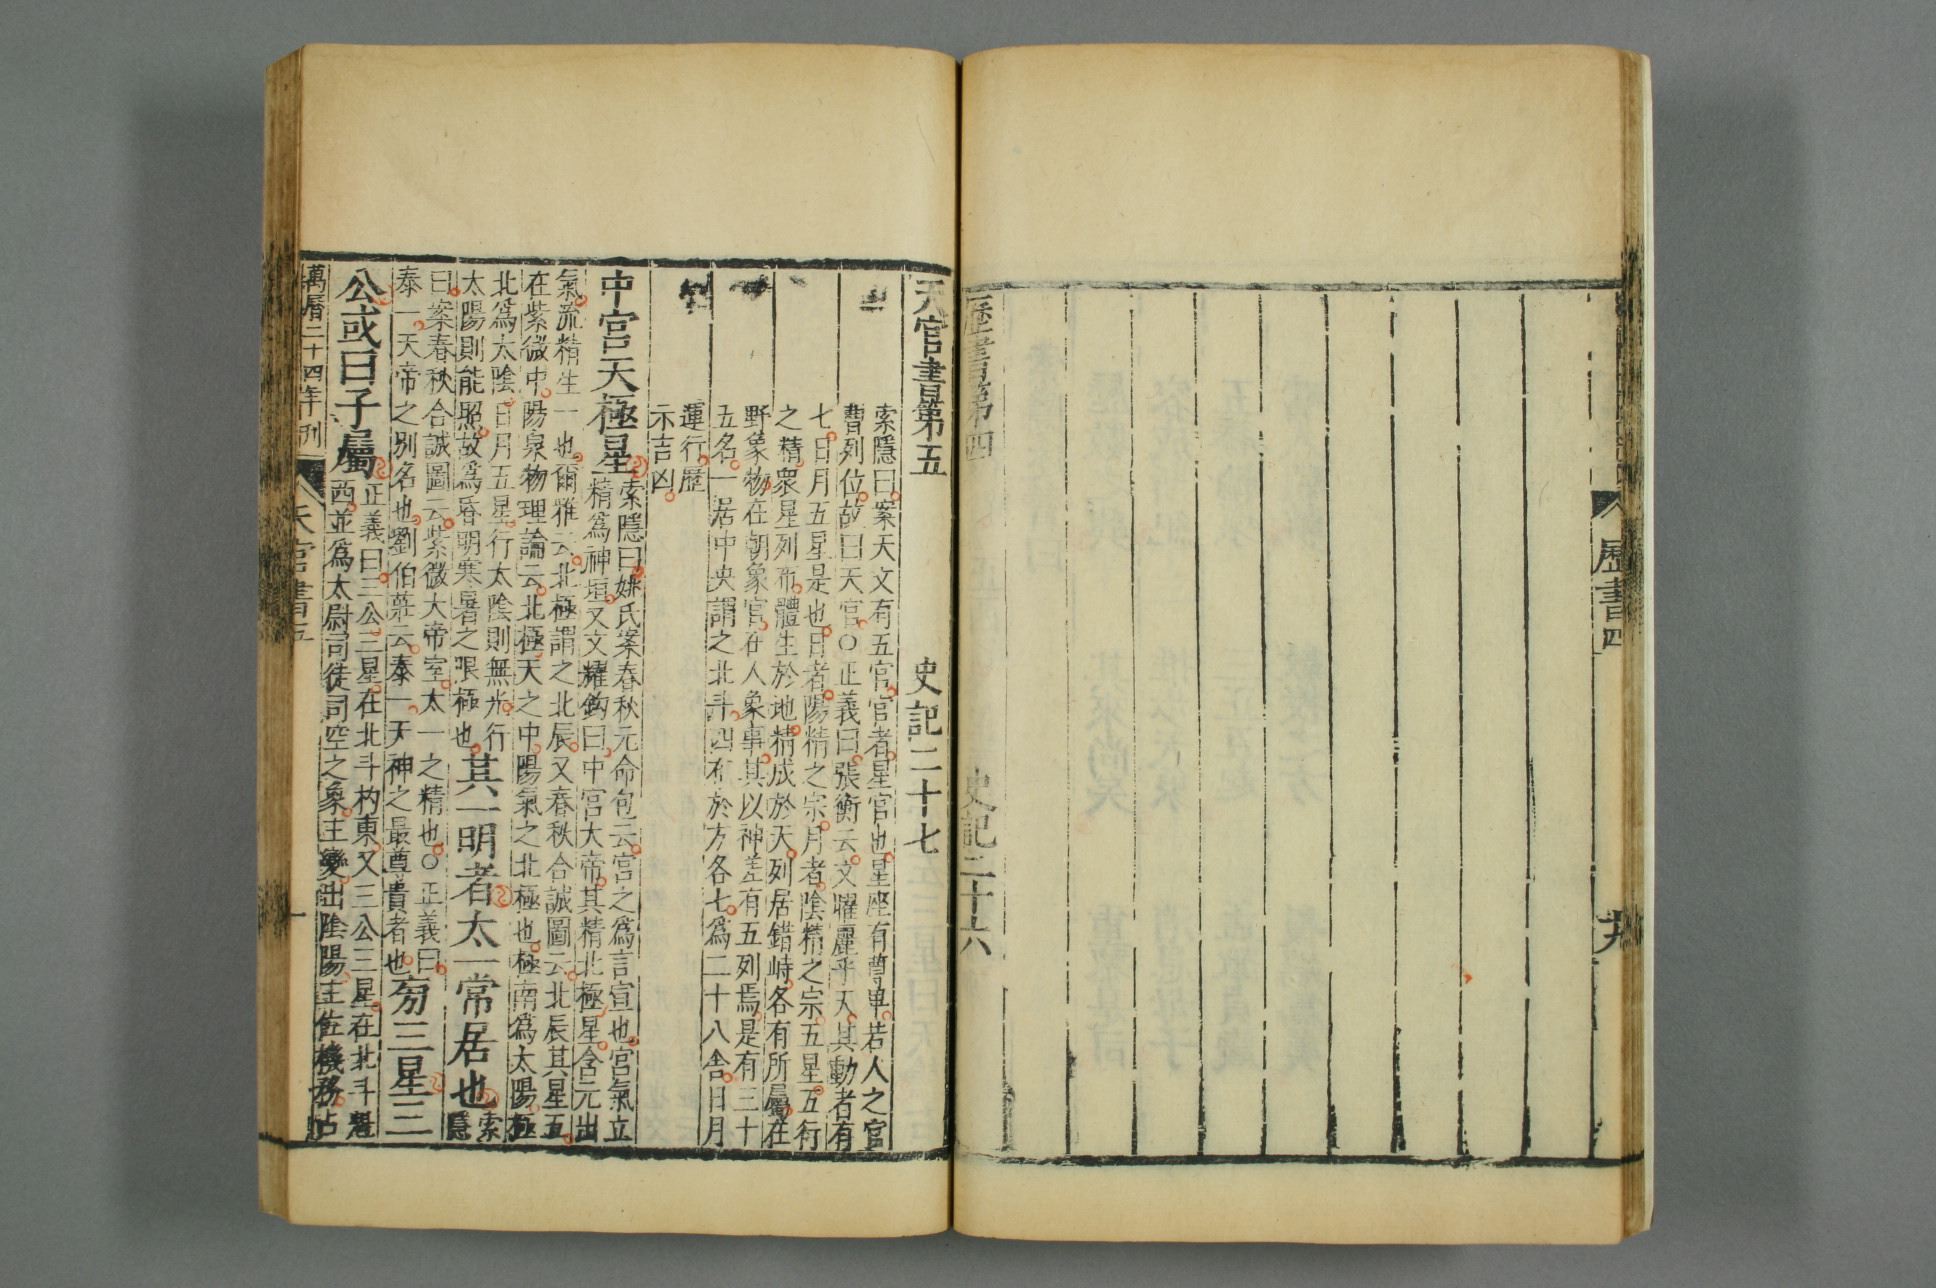 歷書四
歷書第四 史記二十六
天官書第五 史記二十七
索隱曰案天文有五官官者星官也星座有尊卑若人之官
曹列位故曰天官○正義曰張衡云文曜麗乎天其動者有
七日月五星是也日者陽精之宗月者陰精之宗五星五行
之精衆星列布體生於地精成於天列居錯峙各有所屬在
野象物在朝象官在人象事其以神差有五列焉是有三十
五名一居中央謂之北斗四布於方各七爲二十八舍日月
運行歷
示吉凶
中宮天極星
索隱曰姚氏案春秋元命包云宮之爲言宣也宮氣立
精爲神垣又文耀鈎曰中宮大帝其精北極星含元出
氣流精生一也爾雅云北極謂之北辰又春秋合誠圖云北辰其星五
在紫微中陽泉物理論云北極天之中陽氣之北極也極南爲太陽極
北爲太陰日月五星行太陰則無光行
太陽則能照故爲昏明寒暑之限極也
其一明者太一常居也
索
隱
曰案春秋合誠圖云紫微大帝室太一之精也○正義曰
泰一天帝之別名也劉伯莊云泰一天神之最尊貴者也
旁三星三
公或曰子屬
正義曰三公三星在北斗杓東又三公三星在北斗魁
西並爲太尉司徒司空之象主變出陰陽主佐機務占
萬曆二十四年刊 天官書五 一